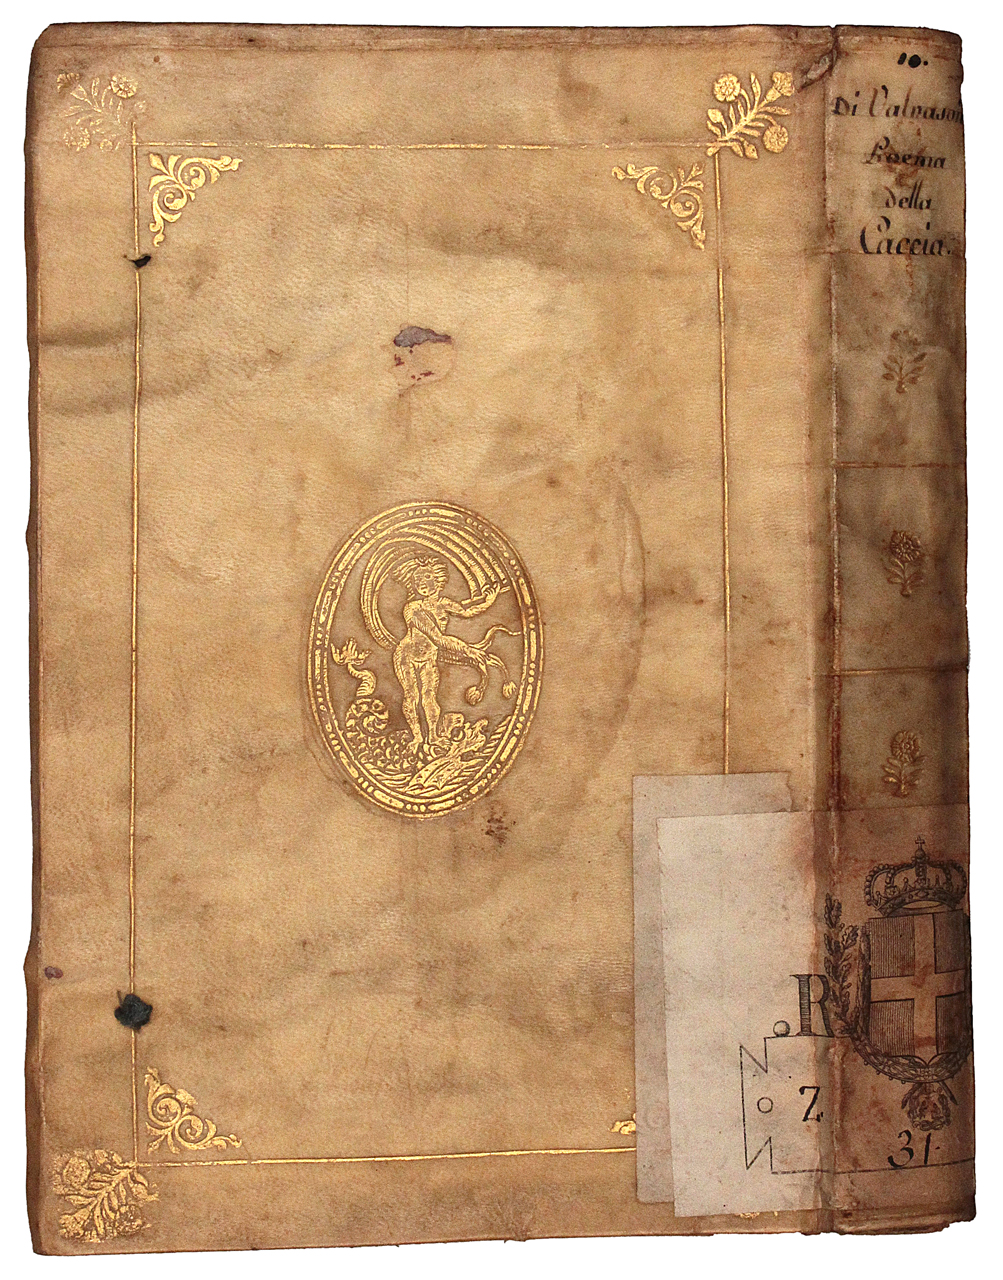 10.
Di Valvason
Poema
della
Caccia.
.R
Z
31.